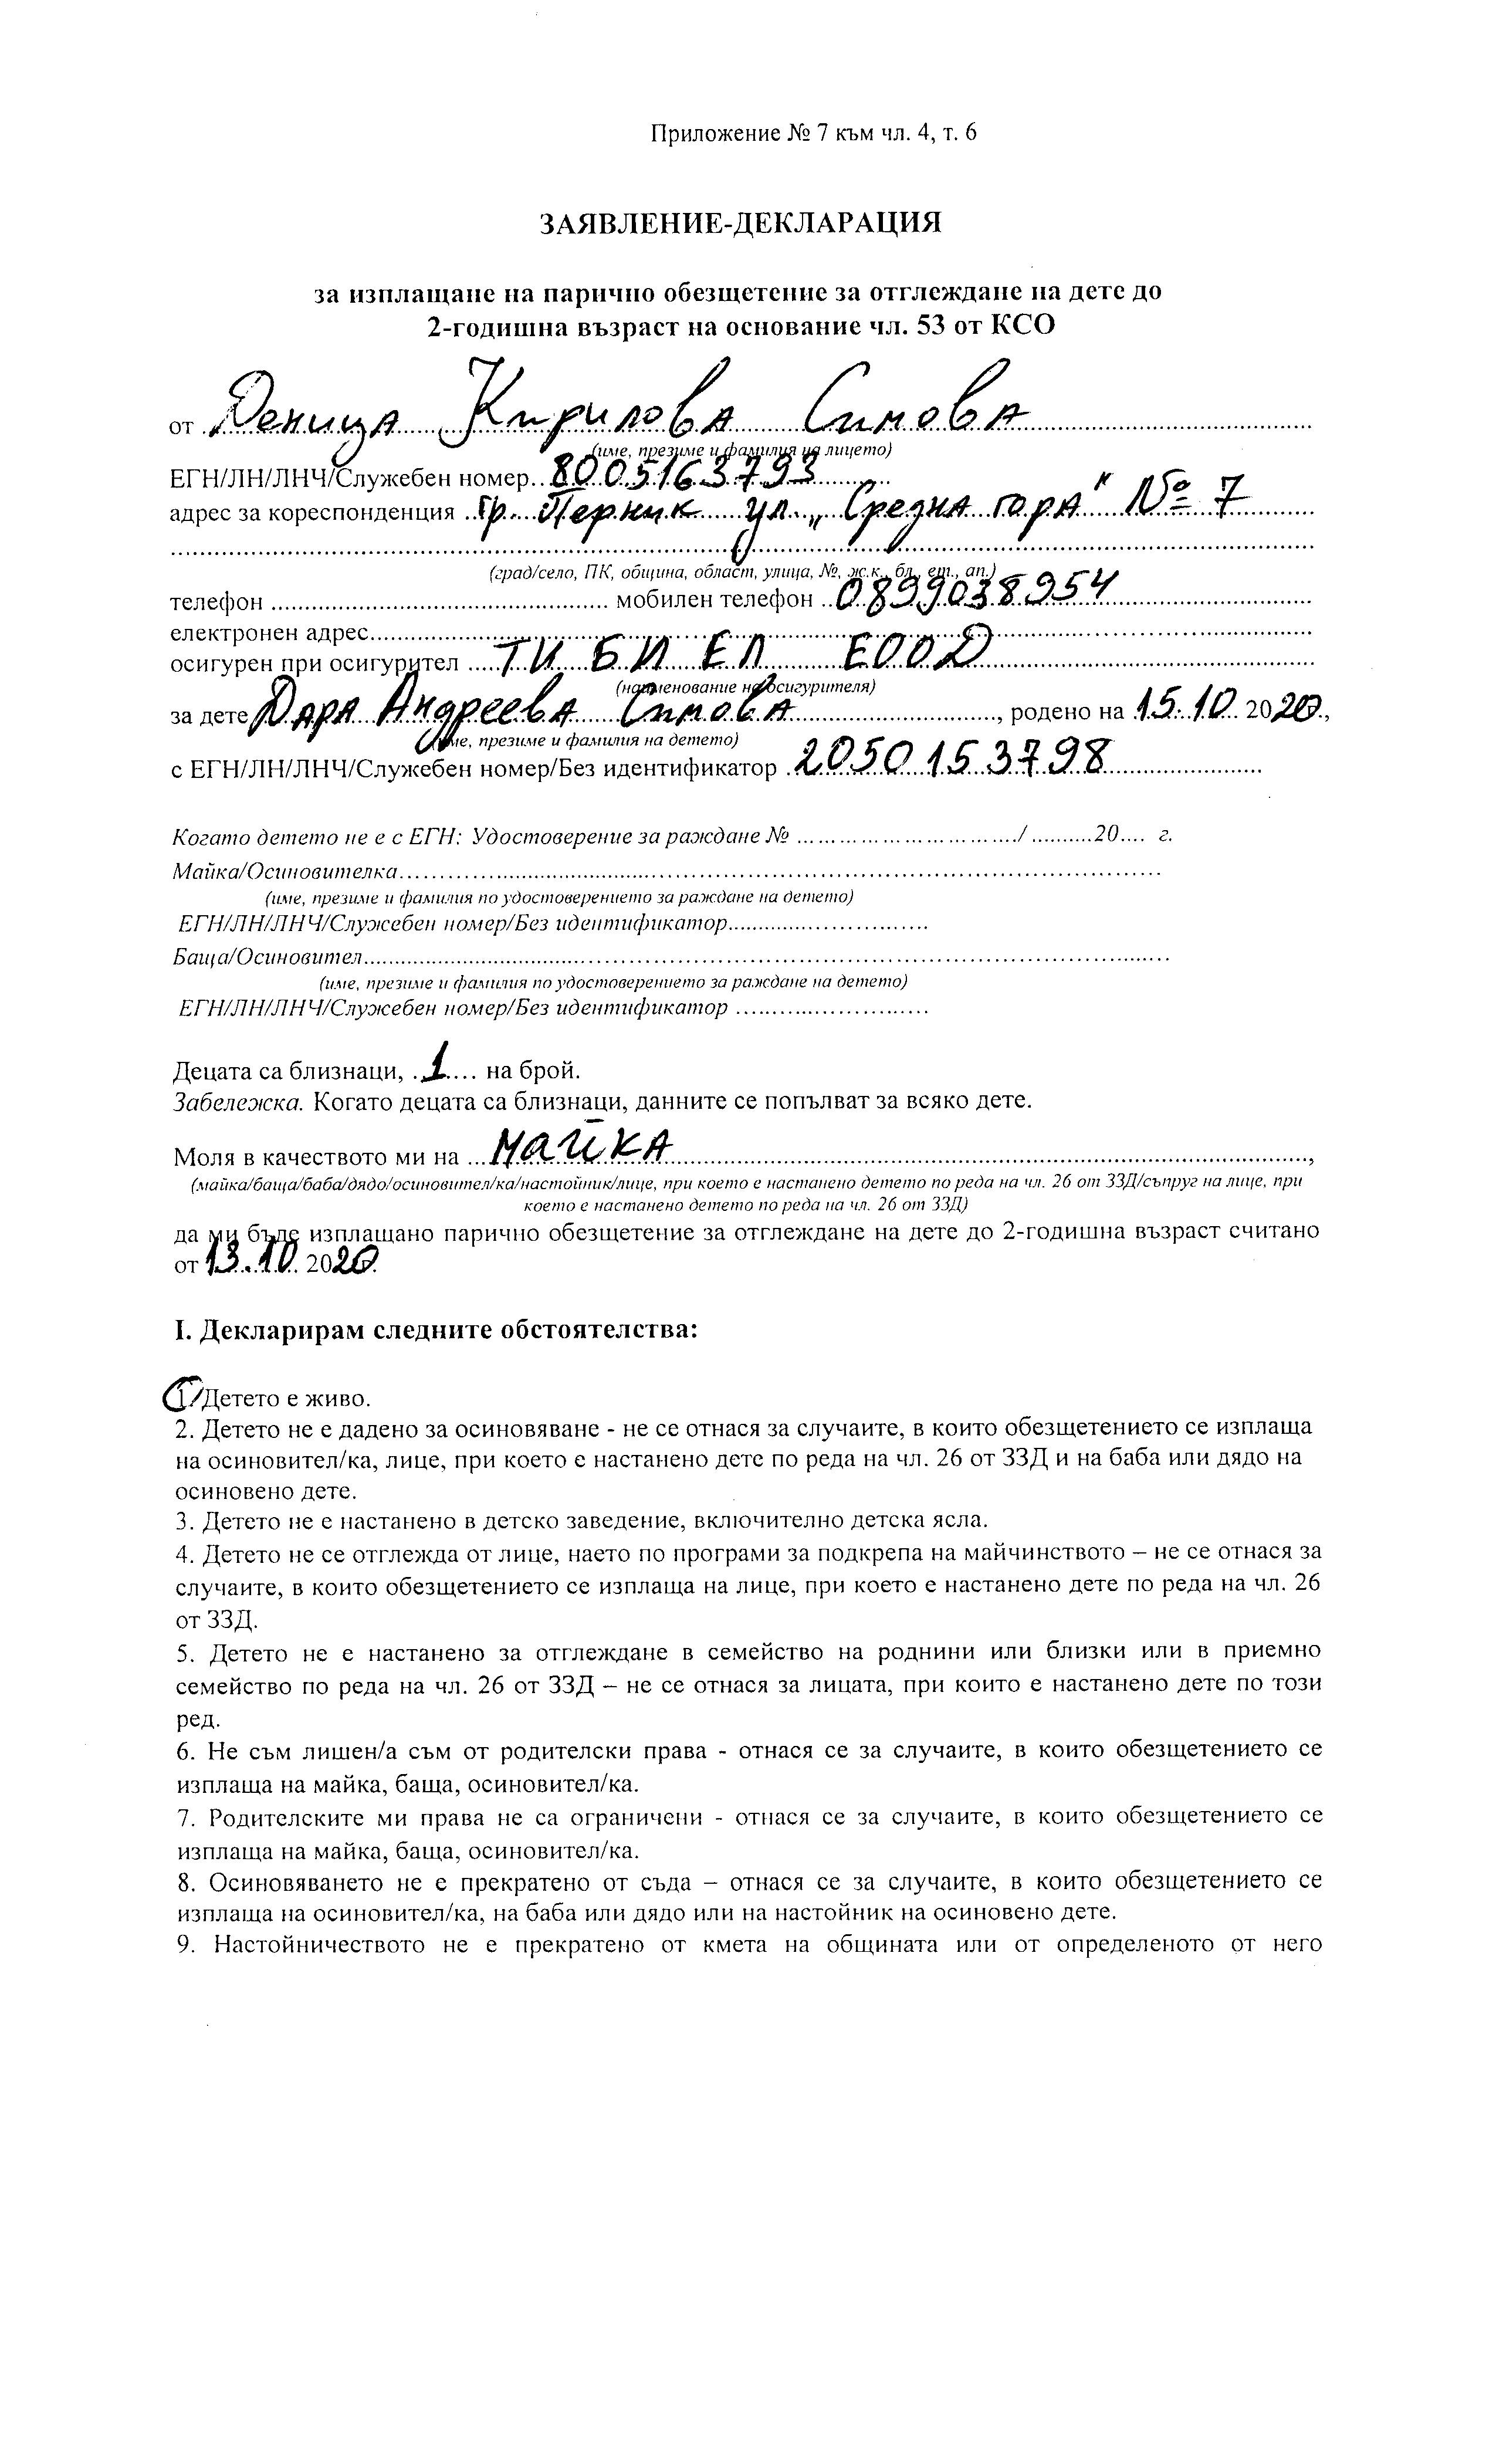 Приложение № 7 към чл. 4, т. 6
ЗАЯВЛЕНИЕ-ДЕКЛАРАЦИЯ
за изплащане на парично обезщетение за отглеждане на дете до
2-годишна възраст на основание чл. 53 от КСО
от Деница Кирилова Симова
(име, презиме и фамилия на лицето)
ЕГН/ЛН/ЛНЧ/Служебен номер 8005163793
адрес за кореспонденция гр. Перник ул. „Средна гора" № 7
(град/село, ПК, община, област, улица, №, ж.к., бл., ет., ап.)
телефон ........ мобилен телефон 0899038954
електронен адрес........
осигурен при осигурител ТИ БИ ЕЛ ЕООД
(наименование на осигурителя)
за дете Дара Андреева Симова, родено на 15.10.2020г.,
(име, презиме и фамилия на детето)
с ЕГН/ЛН/ЛНЧ/Служебен номер/Без идентификатор 2050153798
Когато детето не е с ЕГН: Удостоверение за раждане № ......../........20.... г.
Майка/Осиновителка........
(име, презиме и фамилия по удостоверението за раждане на детето)
ЕГН/ЛН/ЛНЧ/Служебен номер/Без идентификатор........
Баща/Осиновител........
(име, презиме и фамилия по удостоверението за раждане на детето)
ЕГН/ЛН/ЛНЧ/Служебен номер/Без идентификатор ........
Децата са близнаци, ..1.... на брой.
Забележка. Когато децата са близнаци, данните се попълват за всяко дете.
Моля в качеството ми на майка,
(майка/баща/баба/дядо/осиновител/ка/настойник/лице, при което е настанено детето по реда на чл. 26 от ЗЗД/съпруг на лице, при
което е настанено детето по реда на чл. 26 от ЗЗД)
да ми бъде изплащано парично обезщетение за отглеждане на дете до 2-годишна възраст считано
от 13.10.2020г.
I. Декларирам следните обстоятелства:
1. Детето е живо.
2. Детето не е дадено за осиновяване - не се отнася за случаите, в които обезщетението се изплаща
на осиновител/ка, лице, при което е настанено дете по реда на чл. 26 от ЗЗД и на баба или дядо на
осиновено дете.
3. Детето не е настанено в детско заведение, включително детска ясла.
4. Детето не се отглежда от лице, наето по програми за подкрепа на майчинството – не се отнася за
случаите, в които обезщетението се изплаща на лице, при което е настанено дете по реда на чл. 26
от ЗЗД.
5. Детето не е настанено за отглеждане в семейство на роднини или близки или в приемно
семейство по реда на чл. 26 от ЗЗД – не се отнася за лицата, при които е настанено дете по този
ред.
6. Не съм лишен/а съм от родителски права - отнася се за случаите, в които обезщетението се
изплаща на майка, баща, осиновител/ка.
7. Родителските ми права не са ограничени - отнася се за случаите, в които обезщетението се
изплаща на майка, баща, осиновител/ка.
8. Осиновяването не е прекратено от съда – отнася се за случаите, в които обезщетението се
изплаща на осиновител/ка, на баба или дядо или на настойник на осиновено дете.
9. Настойничеството не е прекратено от кмета на общината или от определеното от него